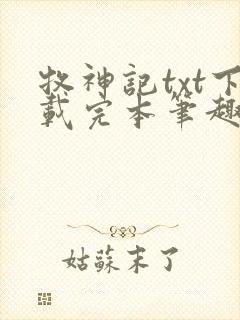 牧神記txt下
載完本筆趣
姑蘇末了